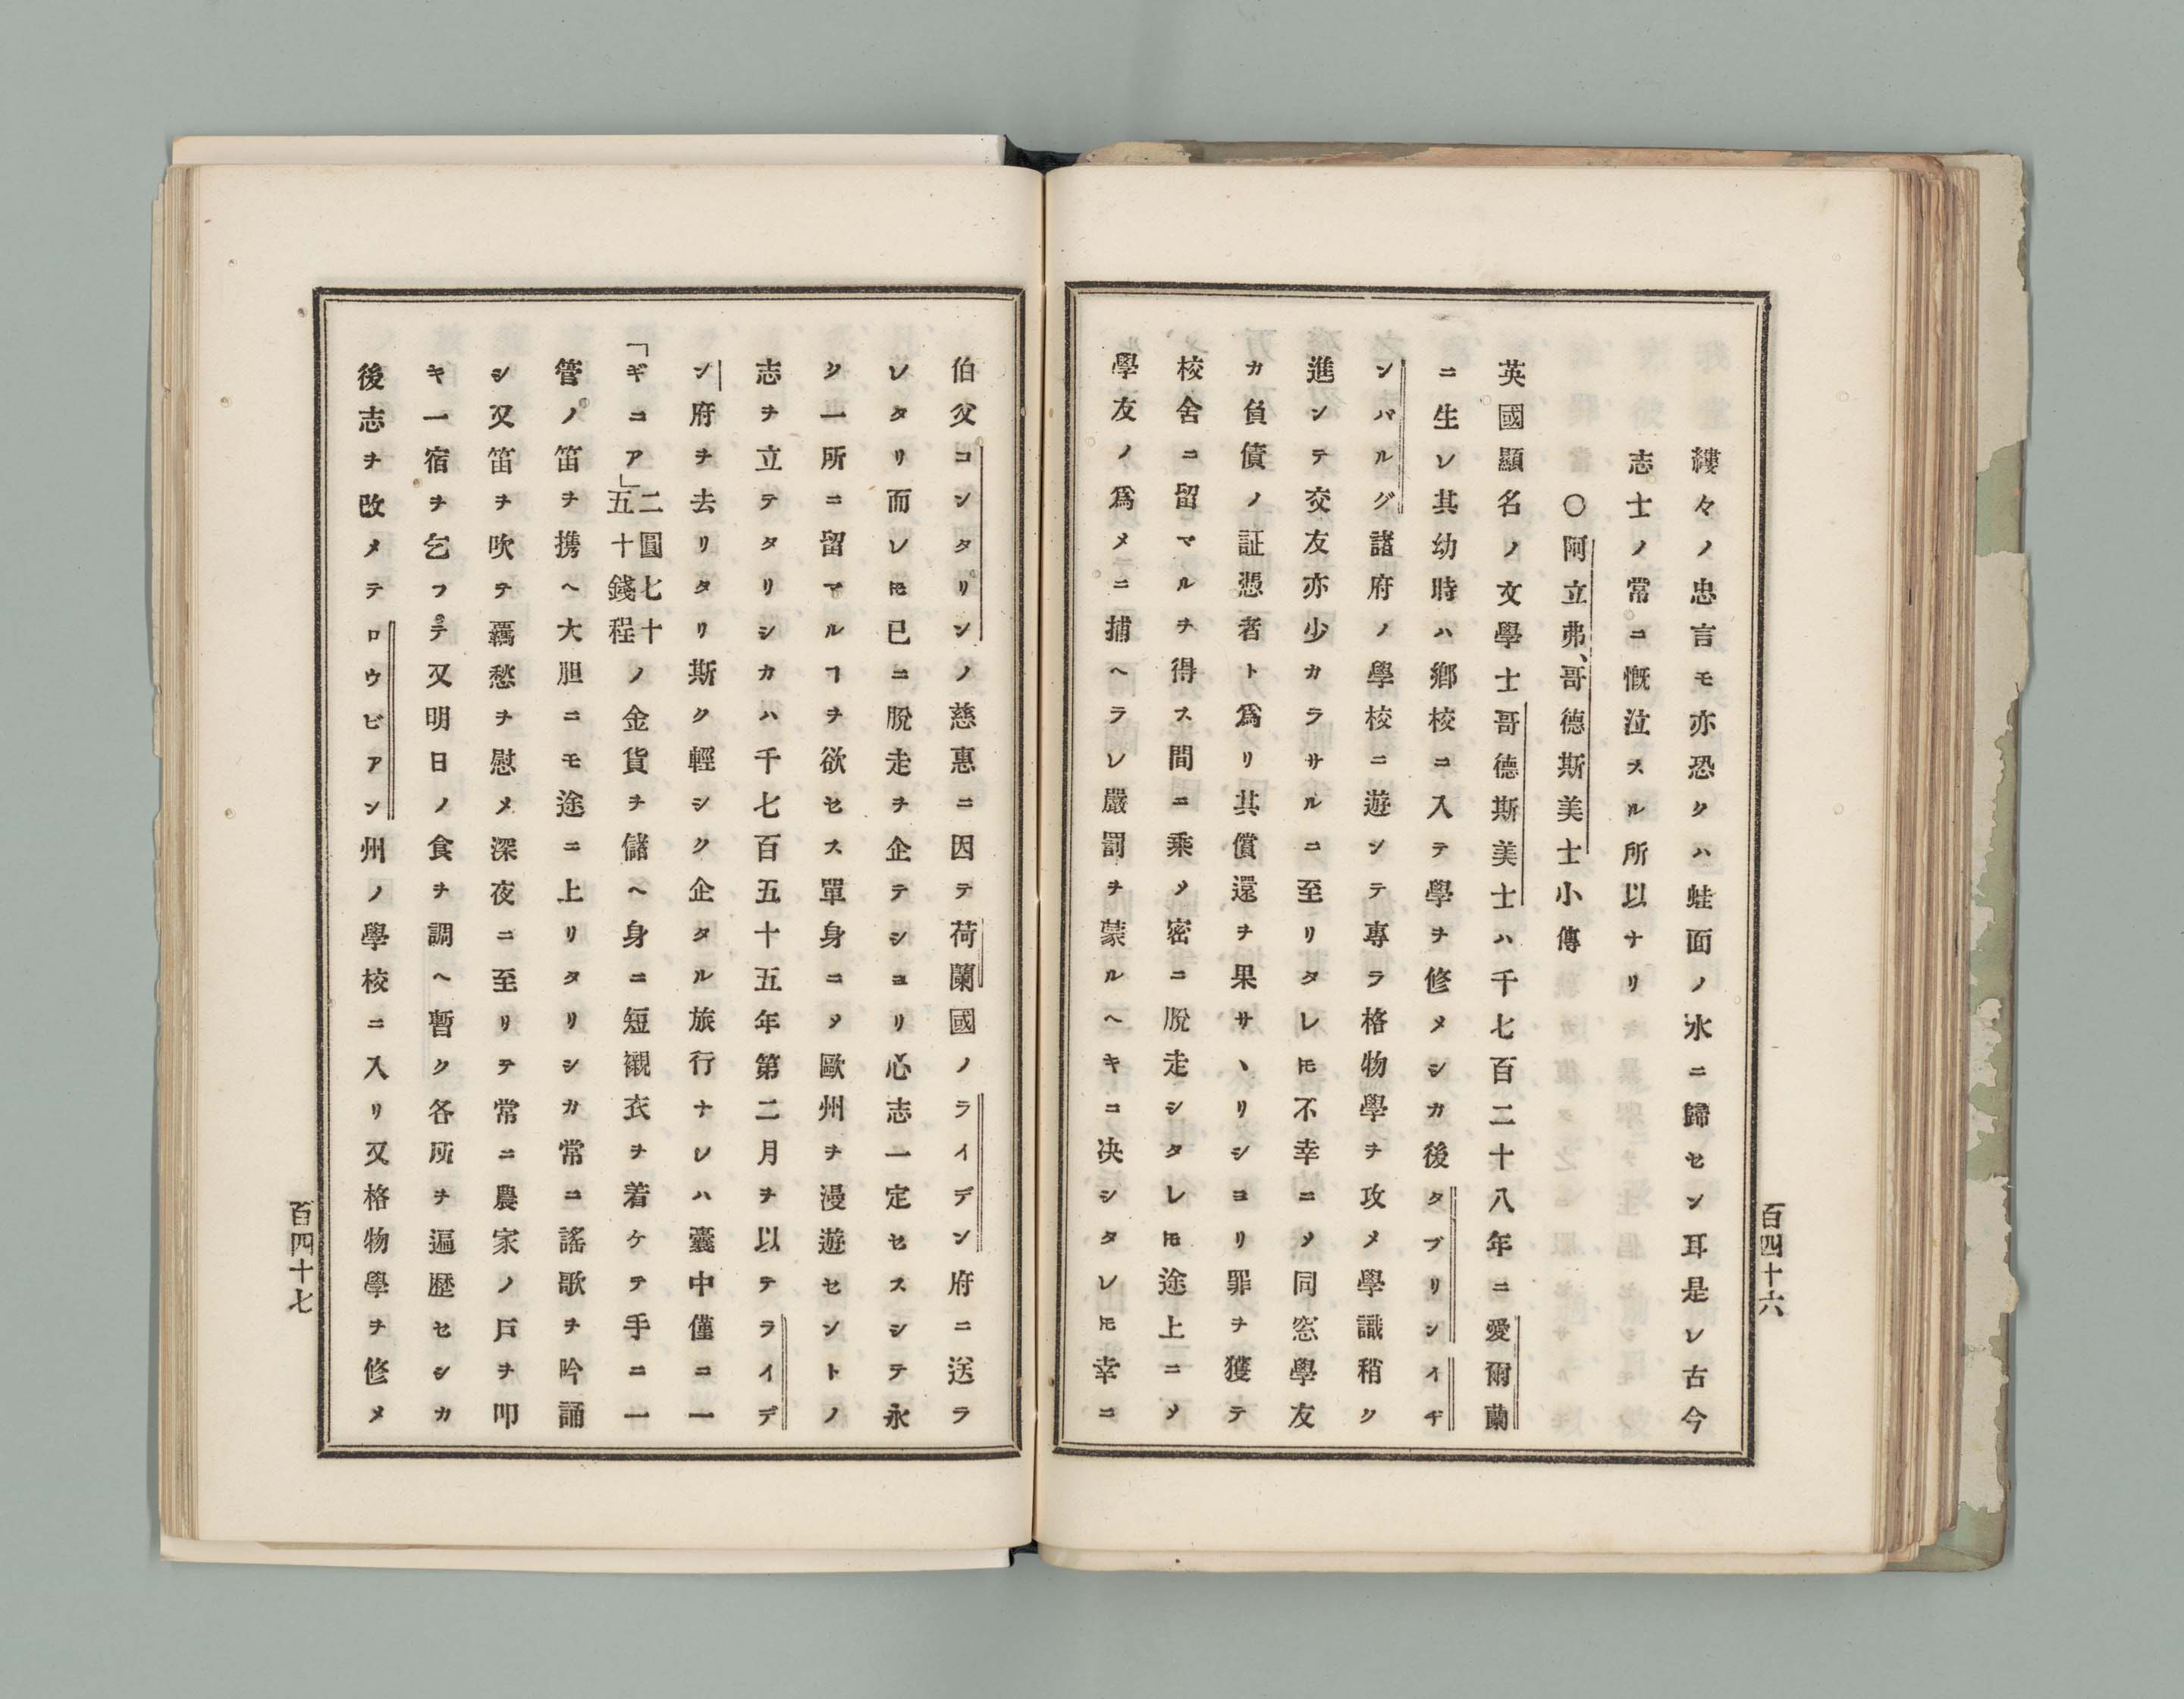 縷々ノ忠言モ亦恐クハ蛙面ノ氷ニ歸センノ耳是レ古今
志士ノ常ニ慨泣スル所以ナリ
〇阿立弗、哥德斯美士小傳
英國顯名ノ文學士哥德斯美士ハ千七百二十八年ニ愛爾蘭
ニ生レ其幼時ハ鄕校ニ入テ學ヲ修メシカ後タブリンイヂ
ンバルグ諸府ノ學校ニ遊ンテ專ラ格物學ヲ攻メ學識稍ク
進ンテ交友亦少カラサルニ至リタレ𪜈不幸ニメ同窓學友
カ負債ノ証憑者ト爲リ其償還ヲ果サヽリシヨリ罪ヲ獲テ
校舍ニ留マルヲ得ス間ニ乘メ密ニ脫走シタレ𪜈途上ニメ
學友ノ爲メニ捕ヘラレ嚴罰ヲ蒙ルヘキニ决シタレ𪜈幸ニ
百四十六
伯父コンタリンノ慈惠ニ因テ荷蘭國ノライデン府ニ送ラ
レタリ而レ𪜈已ニ脫走ヲ企テシヨリ心志一定セスシテ永
ク一所ニ留マルヿヲ欲セス單身ニメ歐州ヲ漫遊セントノ
志ヲ立テタリシカハ千七百五十五年第二月ヲ以テライデ
ン府ヲ去リタリ斯ク輕シク企タル旅行ナレハ囊中僅ニ一
「ギニア」二圓七十五十錢程ノ金貨ヲ儲ヘ身ニ短襯衣ヲ着ケテ手ニ一
管ノ笛ヲ携ヘ大胆ニモ途ニ上リタリシカ常ニ謠歌ヲ吟誦
シ又笛ヲ吹テ羈愁ヲ慰メ深夜ニ至リテ常ニ農家ノ戶ヲ叩
キ一宿ヲ乞フテ又明日ノ食ヲ調ヘ暫ク各所ヲ遍歷セシカ
後志ヲ改メテロウビアン州ノ學校ニ入リ又格物學ヲ修メ
百四十七